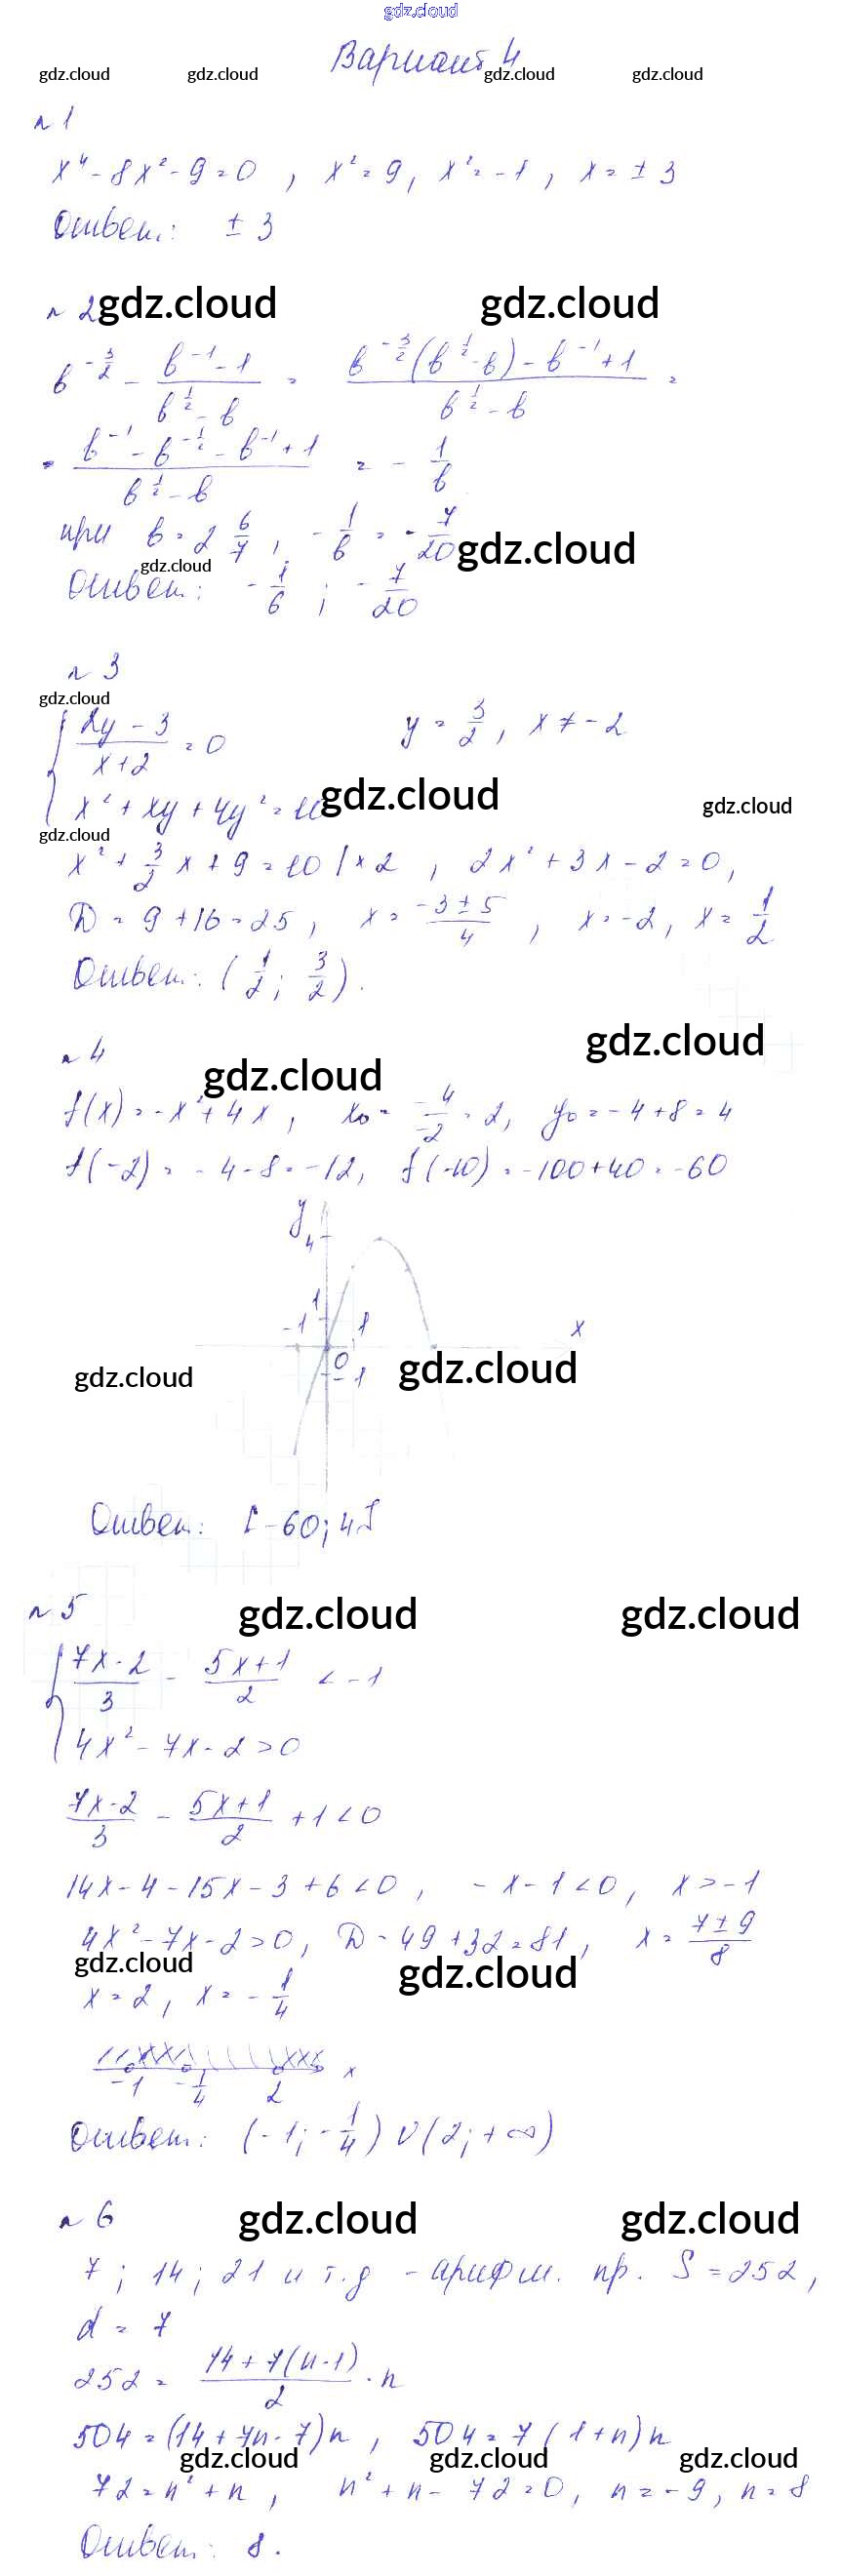 gdz.cloud
Вариант 4
gdz.cloud gdz.cloud gdz.cloud gdz.cloud
№ 1
x⁴ - 8x² - 9 = 0 , x² = 9, x² = -1 , x = ± 3
Ответ: ± 3
№ 2 gdz.cloud gdz.cloud
b^(-3/2) - (b⁻¹ - 1)/(b^(1/2) - b) = (b^(-3/2)(b^(1/2) - b) - b⁻¹ + 1)/(b^(1/2) - b) =
= (b⁻¹ - b^(-1/2) - b⁻¹ + 1)/(b^(1/2) - b) = - 1/b
при b = 2 6/7 , - 1/b = - 7/20 gdz.cloud
gdz.cloud
Ответ: - 1/b ; - 7/20
№ 3
gdz.cloud
{ (2y - 3)/(x + 2) = 0 y = 3/2 , x ≠ -2
x² + xy + 4y² = 10 gdz.cloud gdz.cloud
gdz.cloud
x² + 3/2 x + 9 = 10 | × 2 , 2x² + 3x - 2 = 0 ,
D = 9 + 16 = 25 , x = (-3 ± 5)/4 , x = -2 , x = 1/2
Ответ: (1/2 ; 3/2).
№ 4 gdz.cloud
gdz.cloud
f(x) = -x² + 4x , x₀ = -4/-2 = 2, y₀ = -4 + 8 = 4
f(-2) = -4 - 8 = -12, f(-10) = -100 + 40 = -60
y
4
1
-1 1 x
0
-1
gdz.cloud gdz.cloud
Ответ: [-60; 4]
№ 5 gdz.cloud gdz.cloud
{ (7x - 2)/3 - (5x + 1)/2 < -1
4x² - 7x - 2 > 0
(7x - 2)/3 - (5x + 1)/2 + 1 < 0
14x - 4 - 15x - 3 + 6 < 0 , -x - 1 < 0 , x > -1
4x² - 7x - 2 > 0 , D = 49 + 32 = 81 , x = (7 ± 9)/8
gdz.cloud gdz.cloud
x = 2 , x = - 1/4
-1 -1/4 2 x
Ответ: (-1; -1/4) ∪ (2; +∞)
№ 6 gdz.cloud gdz.cloud
7 ; 14 ; 21 и т.д - арифм. пр. S = 252 ,
d = 7
252 = (14 + 7(n - 1))/2 · n
504 = (14 + 7n - 7)n , 504 = 7(1 + n)n
gdz.cloud gdz.cloud gdz.cloud
72 = n² + n , n² + n - 72 = 0 , n = -9 , n = 8
Ответ: 8.